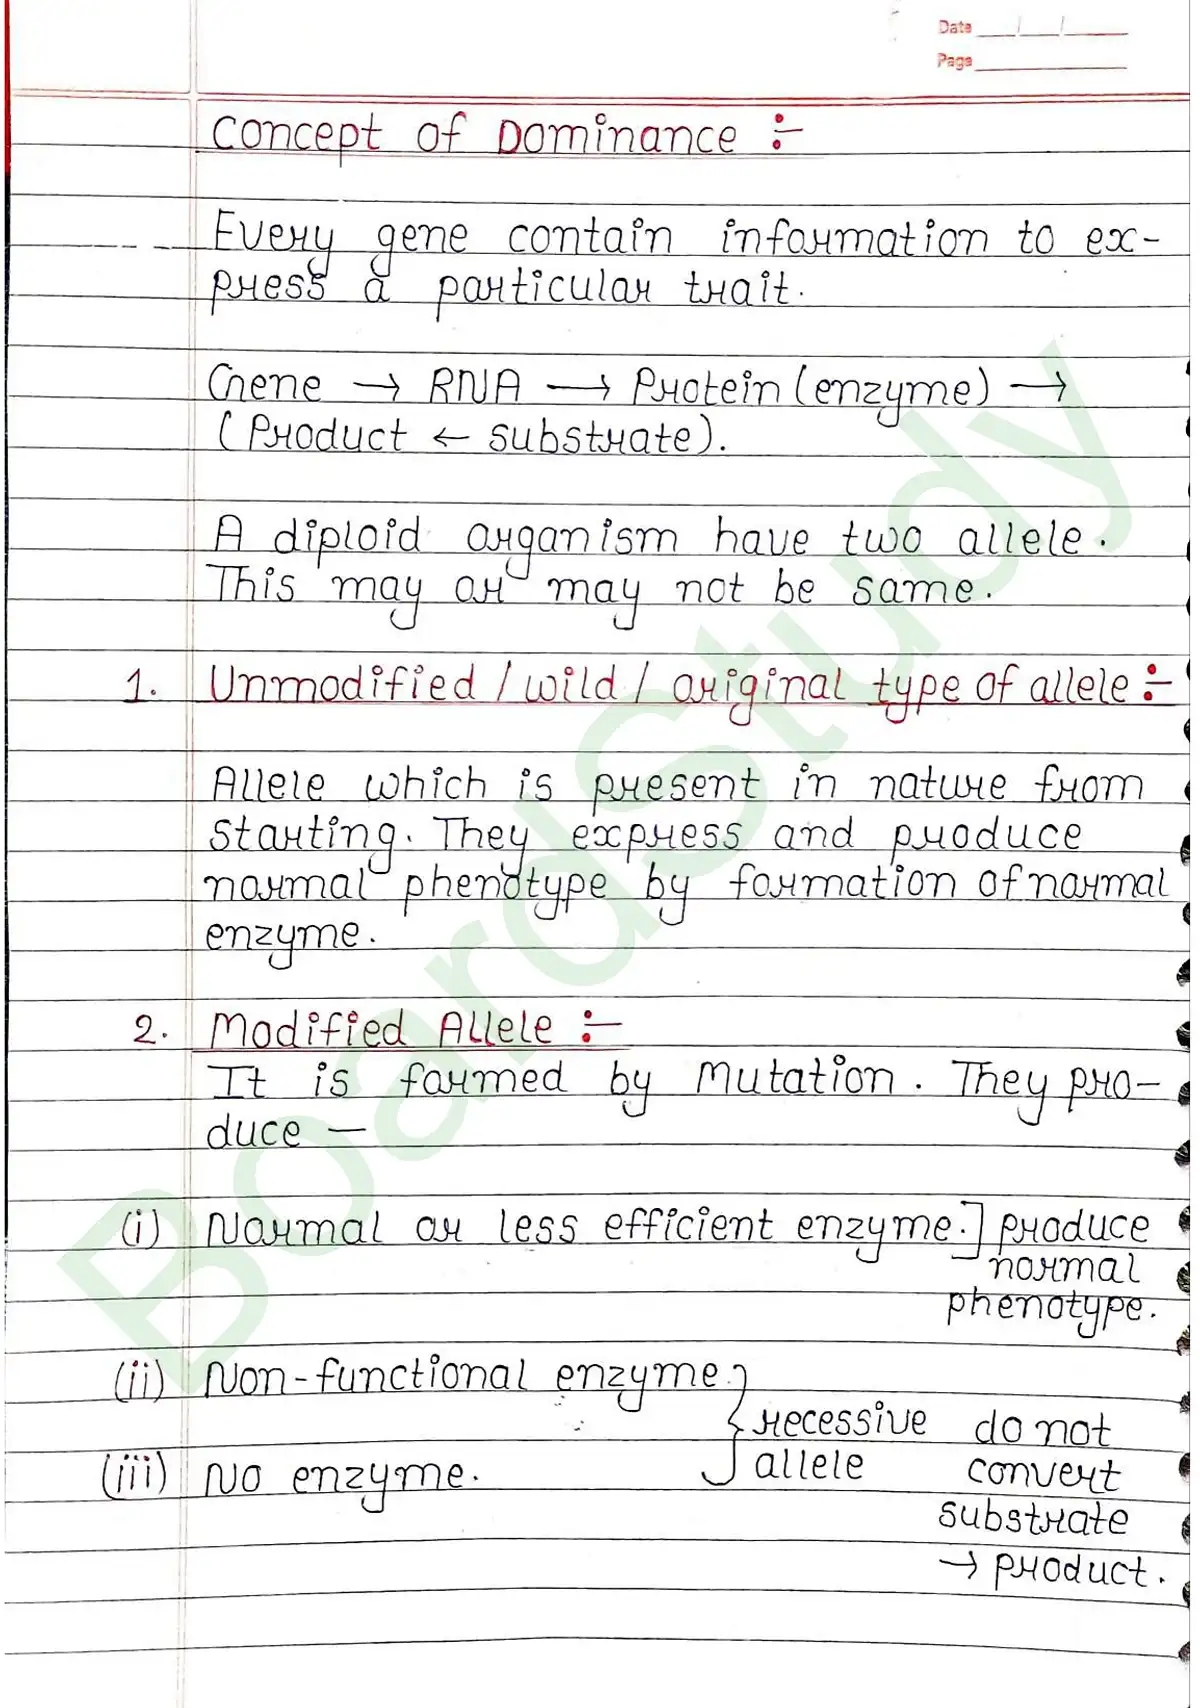 Date __/__/__
Page ____
Concept of Dominance :-
Every gene contain information to ex-
press a particular trait.
Gene → RNA → Protein (enzyme) →
(Product ← substrate).
A diploid organism have two allele.
This may or may not be same.
1. Unmodified / wild / original type of allele :-
Allele which is present in nature from
starting. They express and produce
normal phenotype by formation of normal
enzyme.
2. Modified Allele :-
It is formed by Mutation. They pro-
duce —
(i) Normal or less efficient enzyme.] produce
normal
phenotype.
(ii) Non-functional enzyme.
recessive do not
(iii) No enzyme. allele convert
substrate
→ product.
BoardStudy